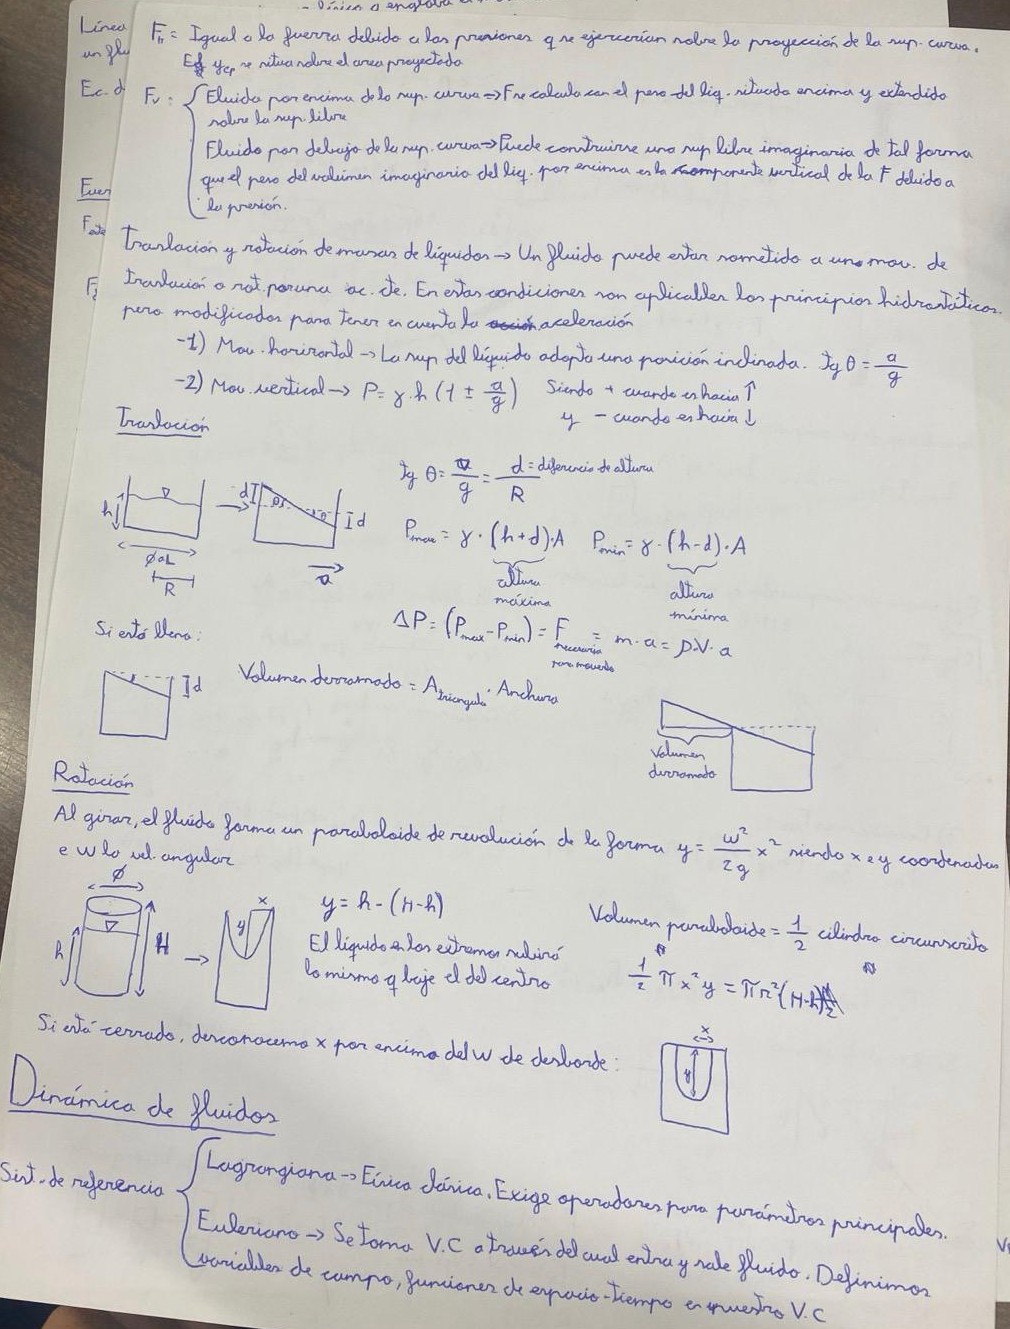 Línea
un flu
Ec. d
Fuer
F
F_h = Igual a la fuerza debido a las presiones q se ejercerían sobre la proyección de la sup. curva.
El y_cp se situa sobre el area proyectada
F_v: { Fluido por encima de la sup. curva => F se calcula con el peso del liq. situado encima y extendido
sobre la sup. libre
Fluido por debajo de la sup. curva => Puede construirse una sup libre imaginaria de tal forma
que el peso del volumen imaginario del liq. por encima es la componente vertical de la F debido a
la presión.
Traslación y rotación de masas de líquidos → Un fluido puede estar sometido a un mov. de
traslación o rot. por una ac. cte. En estas condiciones son aplicables los principios hidrostáticos
pero modificados para tener en cuenta la aceleración
-1) Mov. horizontal → La sup del líquido adopta una posición inclinada. Tg θ = a/g
-2) Mov. vertical → P = γ·h (1 ± a/g) Siendo + cuando es hacia ↑
y - cuando es hacia ↓
Traslación
Tg θ = a/g = d/R d = diferencia de altura
h d θ θ d
φ o L
R
a
P_max = γ·(h+d)·A P_min = γ·(h-d)·A
altura máxima
altura mínima
Si está lleno:
ΔP = (P_max - P_min) = F necesaria para moverlo = m·a = ρ·V·a
d
Volumen derramado = A_triangulo · Anchura
Volumen
derramado
Rotación
Al girar, el fluido forma un paraboloide de revolución de la forma y = ω²/2g x² siendo x e y coordenadas
e w la vel. angular
φ h H x y
y = h - (H-h)
El líquido en los extremos subirá
lo mismo q baje el del centro
Volumen paraboloide = 1/2 cilindro circunscrito
1/2 π x² y = π r² (H-h)
Si está cerrado, desconocemos x por encima del w de desborde:
x
y
Dinámica de fluidos
Sist. de referencia { Lagrangiana → Física clásica. Exige operadores para parámetros principales.
Euleriano → Se toma V.C a través del cual entra y sale fluido. Definimos
variables de campo, funciones de espacio-tiempo en nuestro V.C